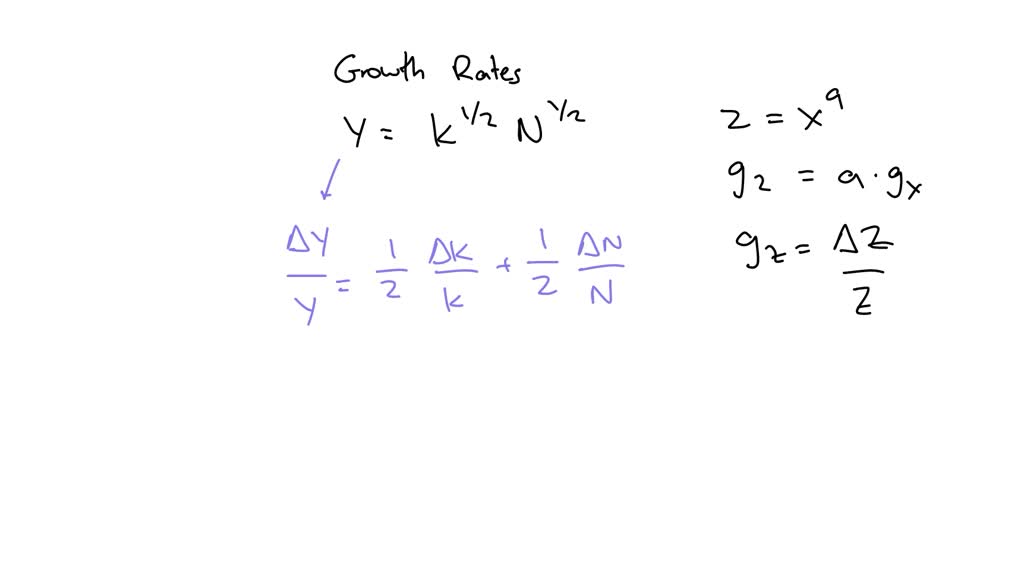 Growth Rates
Y = K^1/2 N^1/2
ΔY/Y = 1/2 ΔK/K + 1/2 ΔN/N
z = x^a
g_z = a · g_x
g_z = ΔZ/Z